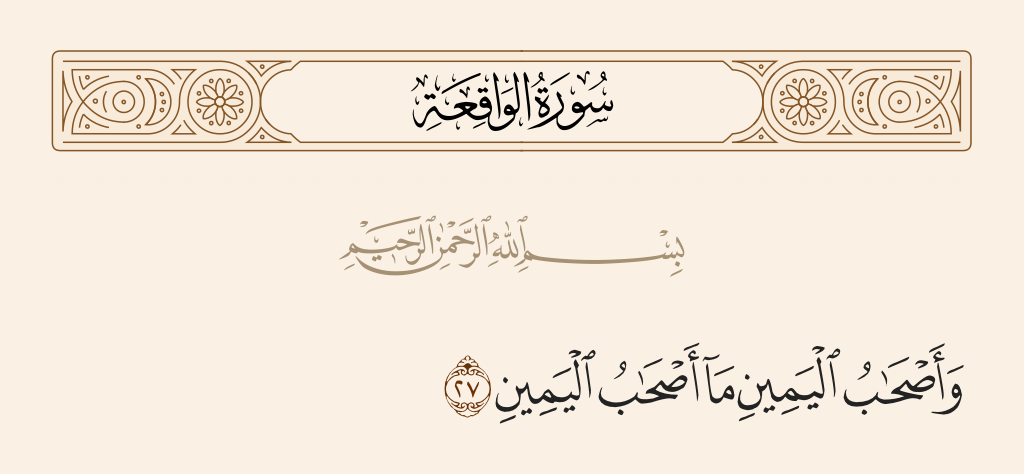 سُورَةُ الوَاقِعَةِ
بِسْمِ ٱللَّهِ ٱلرَّحْمَٰنِ ٱلرَّحِيمِ
وَأَصْحَٰبُ ٱلْيَمِينِ مَآ أَصْحَٰبُ ٱلْيَمِينِ ٢٧